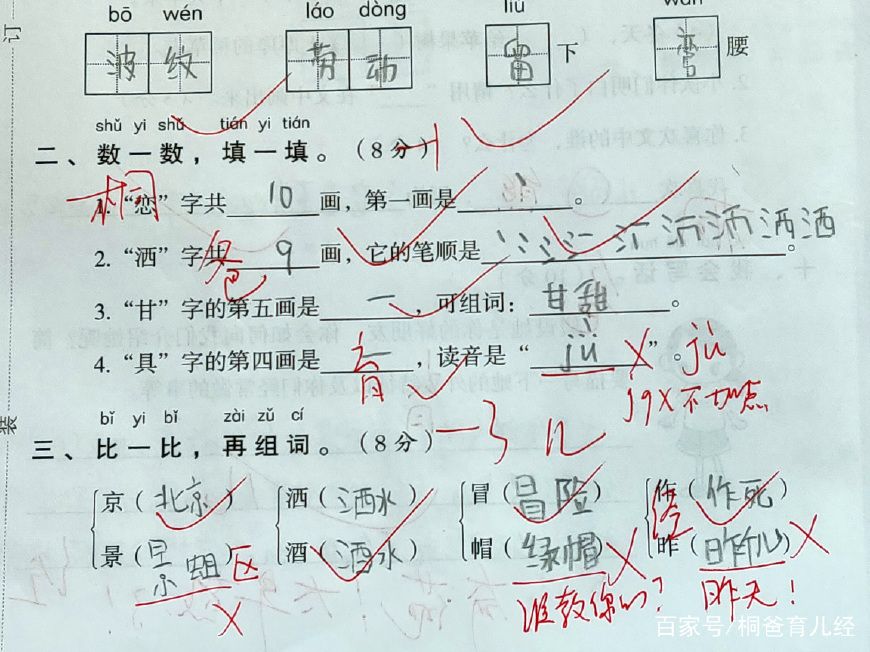 bō wén láo dòng liú wān
波纹 劳动 留下 弯腰
shǔ yi shǔ tián yi tián
二、数一数，填一填。（8分）-1
1.“恋”字共 10 画，第一画是 丶 。
2.“洒”字共 9 画，它的笔顺是 。
3.“甘”字的第五画是 一 ，可组词： 。
4.“具”字的第四画是 一 ，读音是“ jǜ ” X 。 jù
jqx不加点
bǐ yi bǐ zài zǔ cí
三、比一比，再组词。（8分）-3
京（北京） 洒（洒水） 冒（冒险） 作（作死）
景（景 ）区 酒（酒水） 帽（绿帽）X 昨（昨 ）X
X 谁教你的？ 昨天！
订
装
百家号/桐爸育儿经